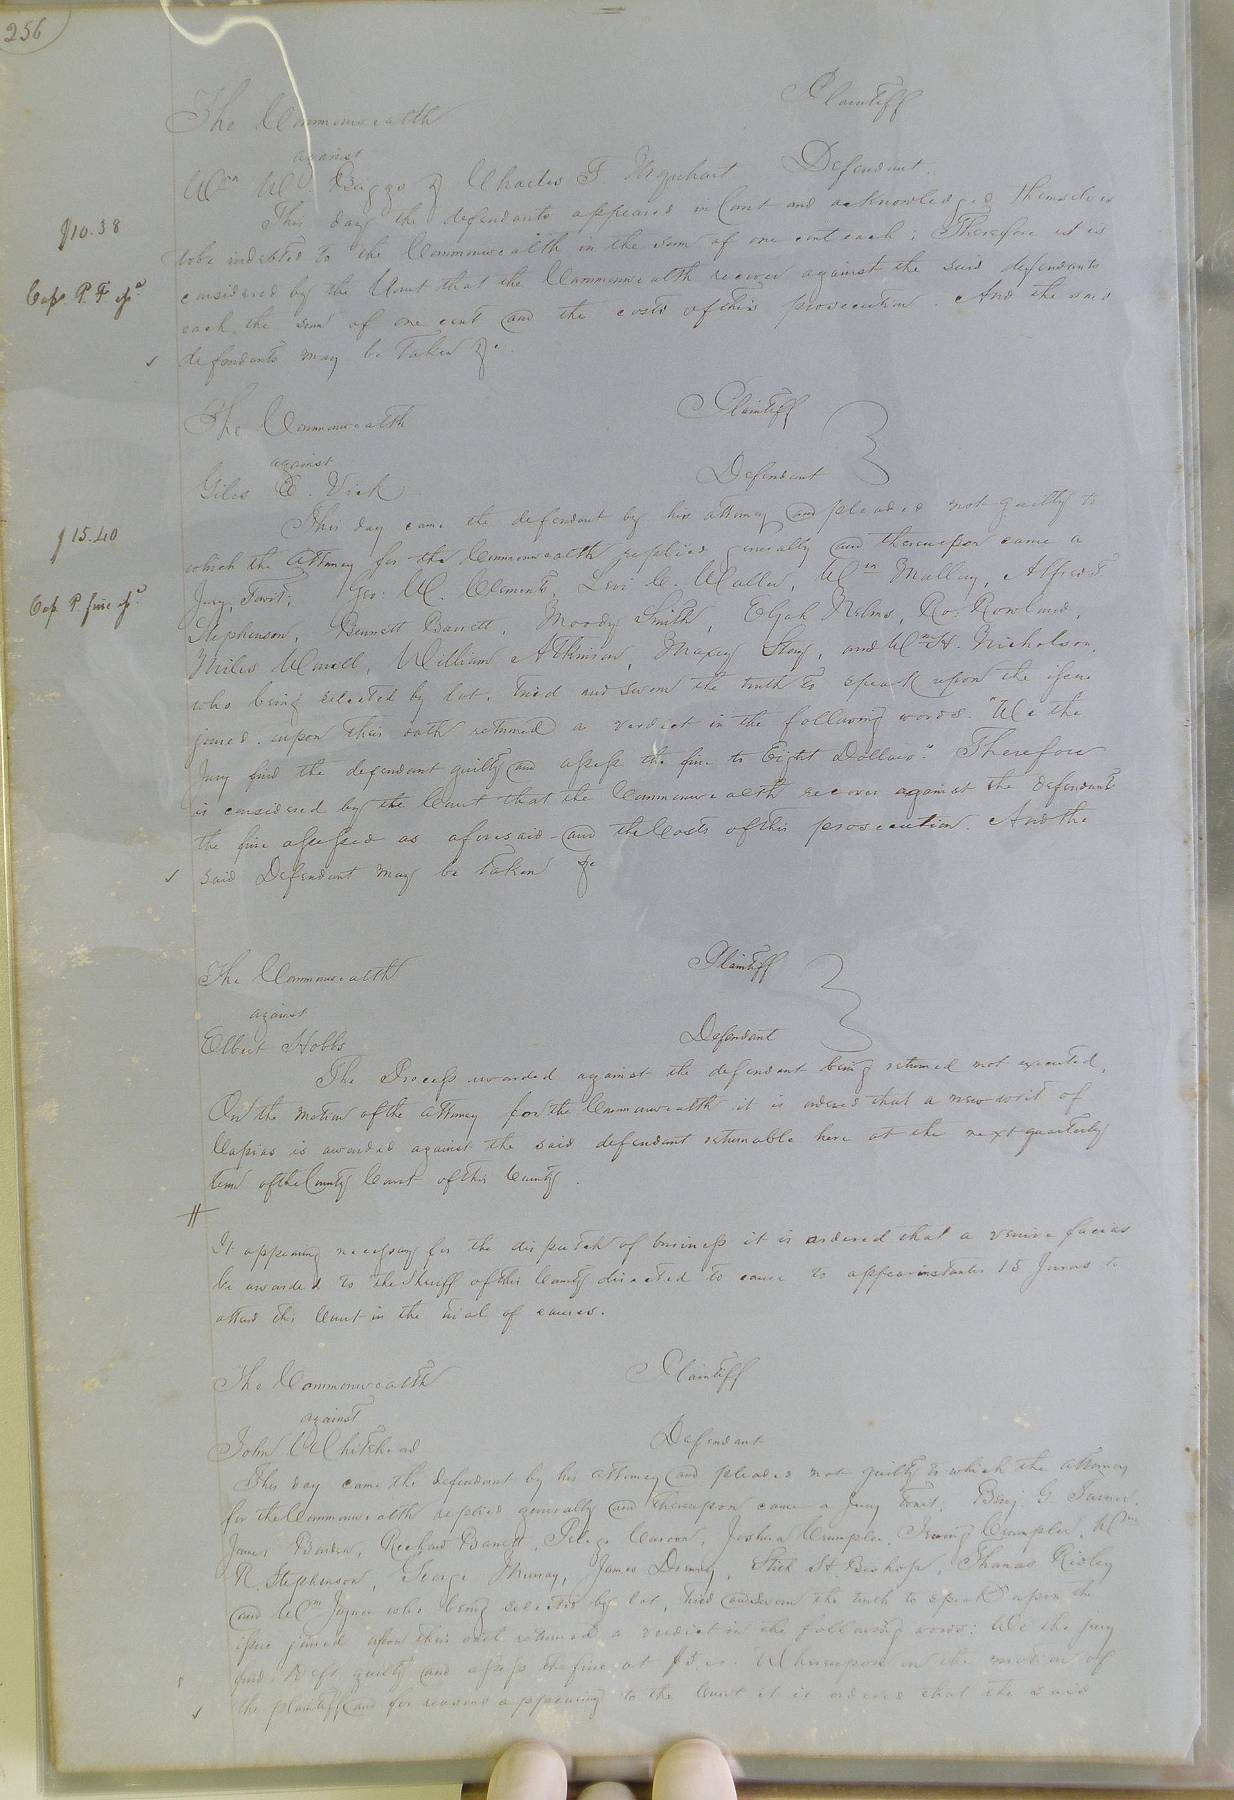 256
The Commonwealth Plaintiff
against
Wm W. Briggs & Charles F. Urquhart Defendant
This day the defendants appeared in Court and acknowledged themselves
$10.38
to be indebted to the Commonwealth in the sum of one cent each; Therefore it is
considered by the Court that the Commonwealth recover against the said defendants
Caps. P. F
each the sum of one cent and the costs of this prosecution. And the said
defendants may be taken &c.
The Commonwealth Plaintiff
against
Giles E. Vick Defendant
This day came the defendant by his attorney and pleaded not guilty to
$15.40
which the Attorney for the Commonwealth replies generally and thereupon came a
Jury, Towit; Geo: W. Clements, Levi C. Waller, Wm Mallory, Alfred T.
Cap. P. fine
Stephenson, Bennett Barrett, Moody Smith, Elijah Nelms, Ro. Rowland,
Miles Worrell, William Atkinson, Maxey Story, and Wm H. Nicholson,
who being selected by lot, tried and sworn the truth to speak upon the issue
joined. upon their oath returned a verdict in the following words. "We the
Jury find the defendant guilty and assess the fine to Eight Dollars". Therefore
is considered by the Court that the Commonwealth recover against the defendant
the fine assessed as aforesaid - and the Costs of this prosecution. And the
said Defendant may be taken &c
The Commonwealth Plaintiff
against
Elbert Hobbs Defendant
The Process awarded against the defendant being returned not executed,
On the motion of the attorney for the Commonwealth it is ordered that a new writ of
Capias is awarded against the said defendant returnable here at the next quarterly
term of the County Court of this County.
It appearing necessary for the dispatch of business it is ordered that a venire facias
be awarded to the Sheriff of this County directed to cause to appear instanter 15 Jurors to
attend this Court in the trial of causes.
The Commonwealth Plaintiff
against
John Whitehead Defendant
This day came the defendant by his attorney and pleaded not guilty to which the attorney
for the Commonwealth replied generally and thereupon came a Jury towit; Benj. G. Turner,
James Barden, Richard Barrett, Carson, Joshua Crumpler, Irving Crumpler, Wm
R. Stephenson, George Murray, James Drewry, Stith H. Bishop, Thomas Ridley
and Wm Joyner who being selected by lot, tried and sworn the truth to speak upon the
issue joined upon their oath returned a verdict in the following words: We the jury
find Deft guilty and assess the fine at Whereupon on the motion of
the plaintiff and for reasons appearing to the Court it is ordered that the said